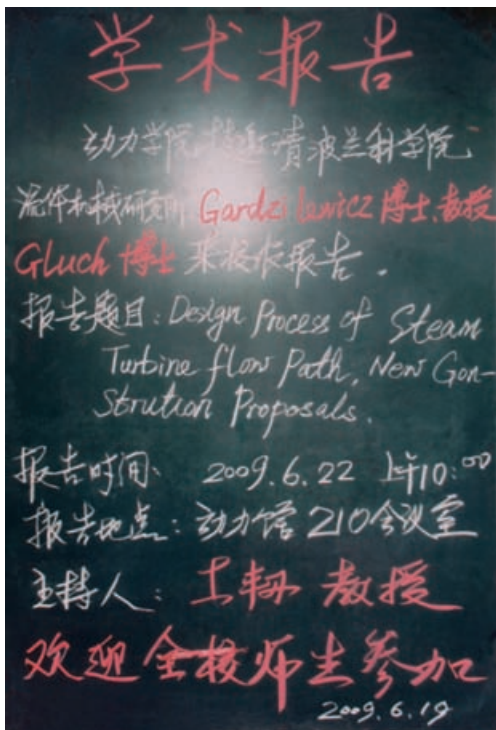 学术报告
动力学院特邀请波兰科学院
流体机械研究所 Gardzilewicz 博士、教授
Gluch 博士 来校作报告.
报告题目: Design Process of Steam
Turbine flow Path, New Gon-
Strution Proposals.
报告时间: 2009.6.22 上午10:00
报告地点: 动力馆 210会议室
主持人: 教授
欢迎全校师生参加
2009.6.19